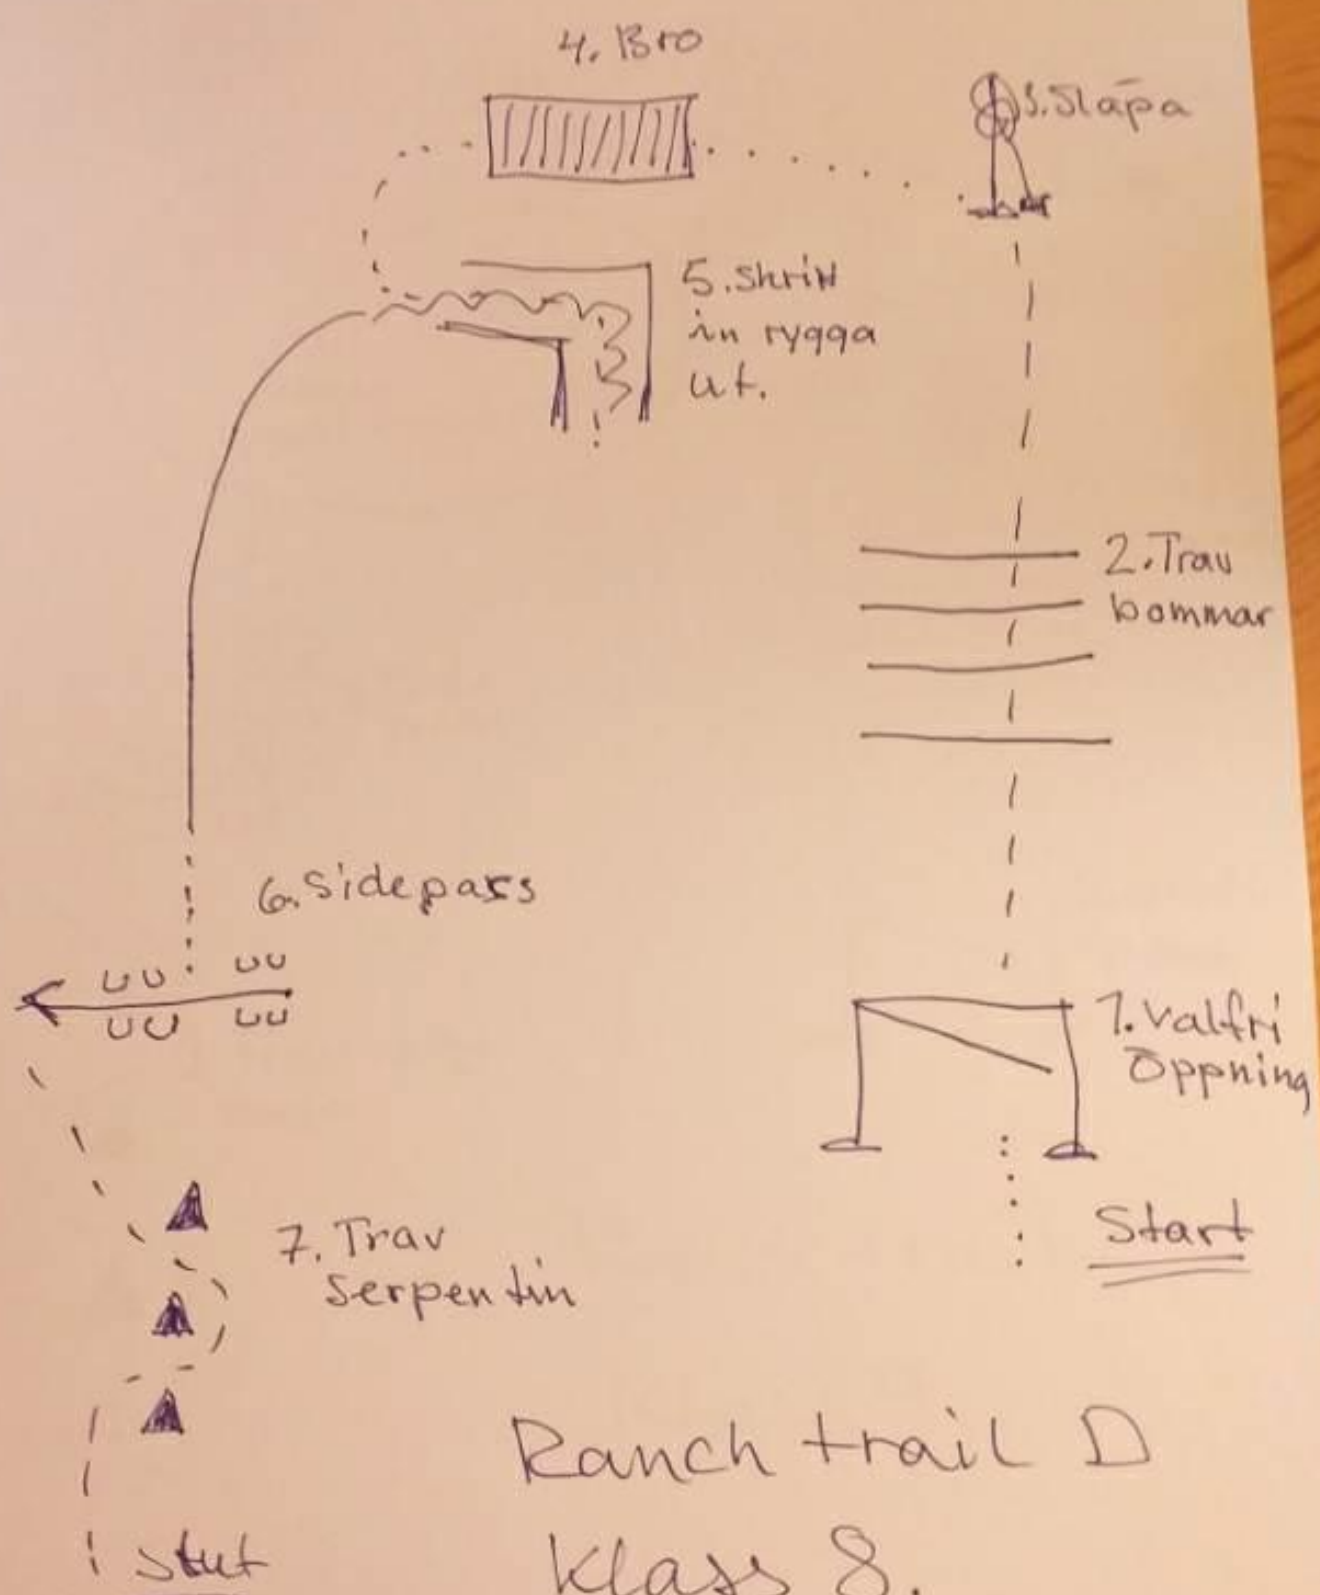 4. Bro
3. Slāpa
5. Skritt
in rygga
ut.
2. Trav
bommar
6. Sidepass
1. Valfri
Öppning
7. Trav
Serpentin
Start
Ranch trail D
Klass 8.
slut